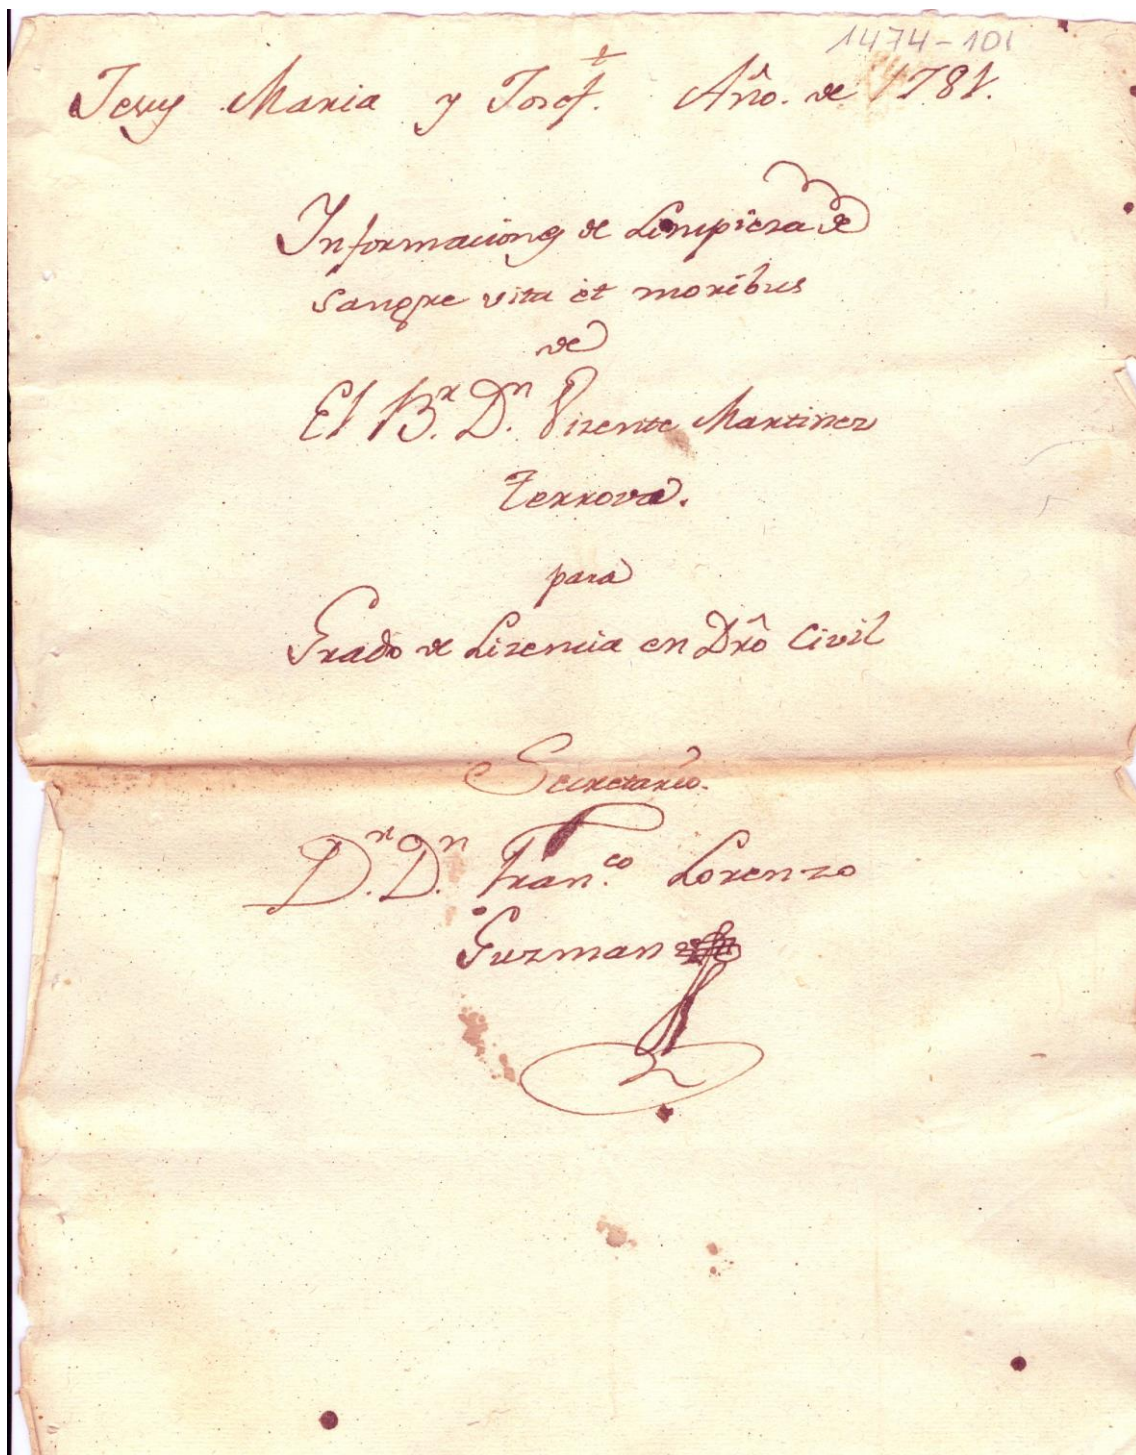 1474-101
Jesus Maria y Josef. Año. de 1781.
Informaciones de Limpieza de
sangre vita et moribus
de
El B.r D.n Vizente Martinez
Terrova.
para
Grado de Lizencia en Dr̂o Civil
Secretario.
D.r D.n Fran.co Lorenzo
Guzman